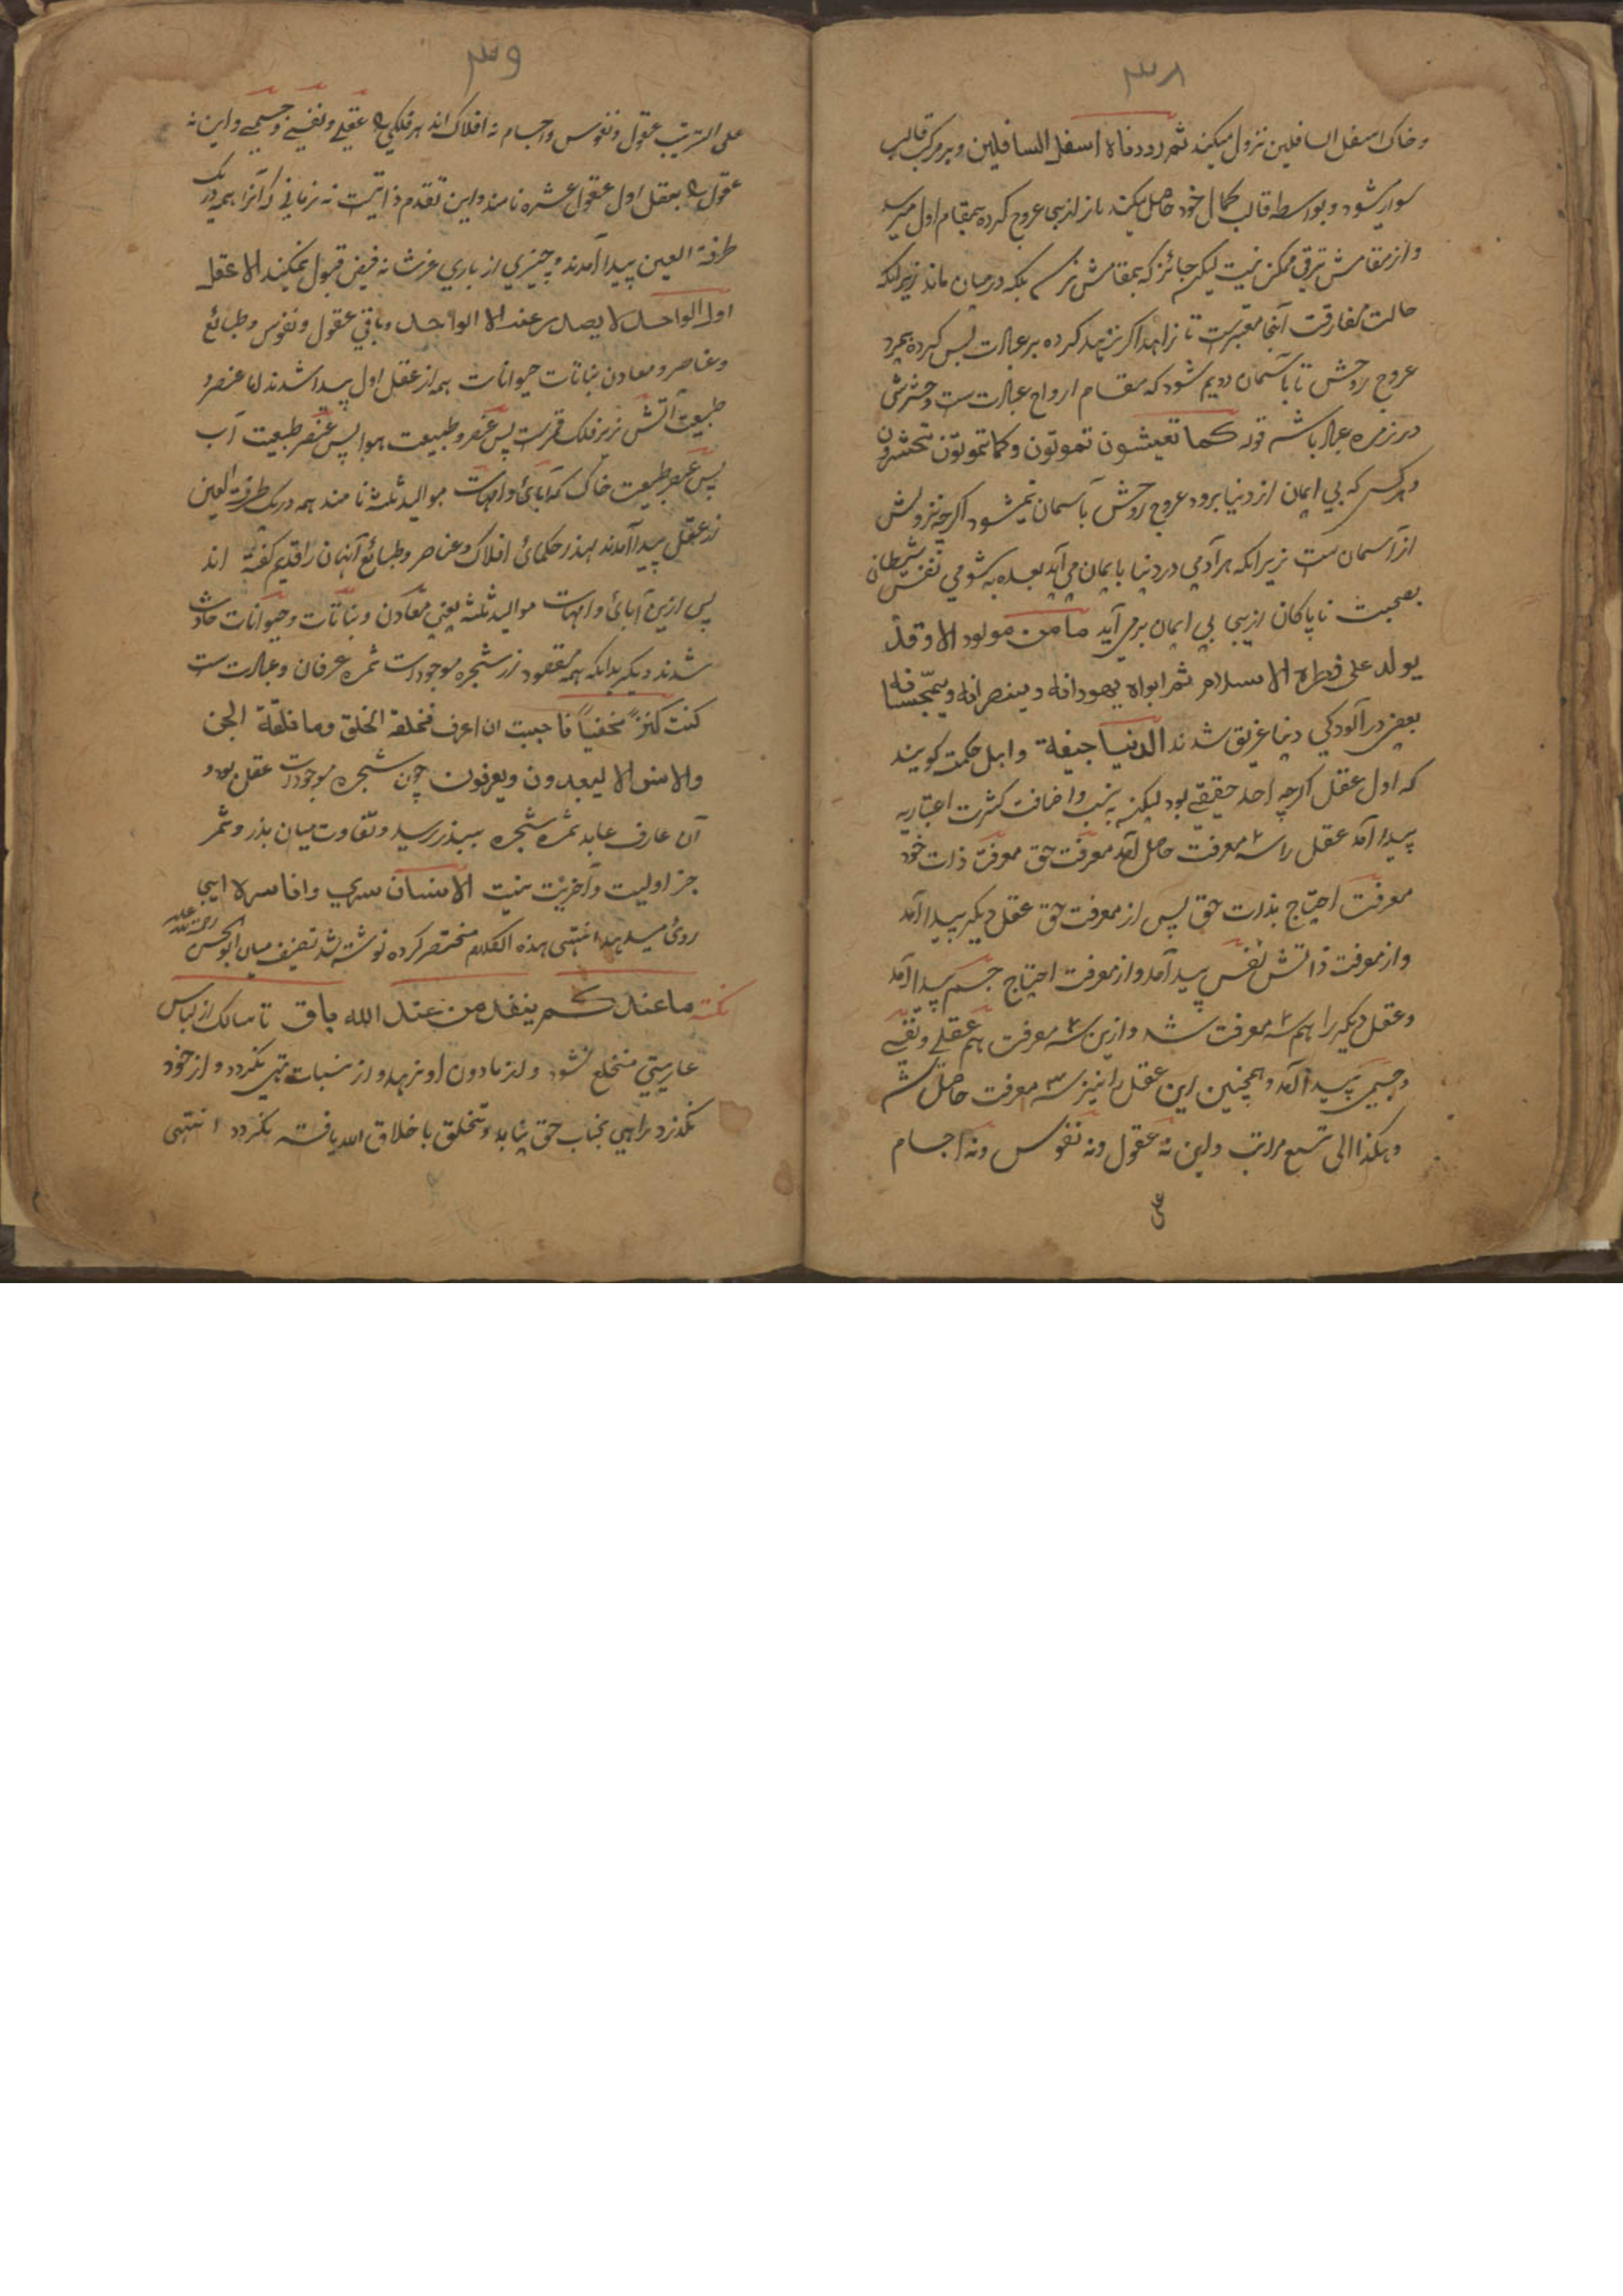 ۳۸
و خاک اسفل السافلین نزول میکند ثم رددناه اسفل السافلین و بر مرکب قالب
سوار میشود و بواسطه قالب کمال خود حاصل میکند باز ازیں جا عروج کرده بمقام اول میرسد
و از مقامش ترقی ممکن نیست لیکن جائز که بمقامش نرسد بلکه درمیان ماند زیرانکه
حالت مفارقت آنجا معتبرست تا زاهد اکر زهد کرده بر عبادت بس کرده بمیرد
عروج روحش تا بآسمان دویم شود که مقام ارواح عبادت ست و حشرش
در زمره عباد باشد قوله کما تعیشون تموتون و کما تموتون تحشرون
و هر کس که بی ایمان از دنیا برود عروج روحش بآسمان نمیشود اکرچه نزولش
از آسمان ست زیرانکه هر آدمی در دنیا با ایمان می آید بعده به شومی نفس شیطانی
بصحبت ناپاکان ازیں جا بی ایمان برمی آید ما من مولود الا وقد
یولد علی فطرة الاسلام ثم ابواه یهودانه و ینصرانه و یمجسانه
بعضی در آلودکی دنیا غریق شدند الدنیا جیفة و اهل حکمت کویند
که اول عقل اکرچه احد حقیقی بود لیکن به نسب و اضافت کثرت اعتباریه
پیدا آمد عقل را سه معرفت حاصل آمد معرفت حق معرفت ذات خود
معرفت احتیاج بذات حق پس از معرفت حق عقل دیکر پیدا آمد
و از معرفت ذاتش نفس پیدا آمد و از معرفت احتیاج جسم پیدا آمد
و عقل دیکر را هم سه معرفت شد و ازین سه معرفت هم عقلی و نفسی
و جسمی پیدا آمد و همچنین این عقل را نیز سه معرفت حاصل شد
و هکذا الی تسع مراتب و این نه عقول و نه نفوس و نه اجسام
علی
۳۹
علی الترتیب عقول و نفوس و اجسام نه افلاک اند هر فلکی را عقلی و نفسی و جسمی و این نه
عقول را بعقل اول عقول عشره نامند و این تقدم ذاتیست نه زمانی که آنرا همه در یک
طرفة العین پیدا آمدند و چیزی از باری عزشانه فیض قبول نمیکند الا عقل
اول الواحد لا یصدر عنه الا الواحد و باقی عقول و نفوس و طبائع
و عناصر و معادن نباتات حیوانات همه از عقل اول پیدا شدند اما عنصر و
طبیعت آتش زیر فلک قمرست پس عنصر و طبیعت هوا پس عنصر طبیعت آب
پس عنصر طبیعت خاک که آبائ و امهات موالید ثلثه نامند همه در یک طرفة العین
از عقل پیدا آمدند لهذا حکمائ افلاک و عناصر و طبائع آنهان را قدیم کفته اند
پس ازین آبائ و امهات موالید ثلثه یعنی معادن و نباتات و حیوانات حادث
شدند دیکر بدانکه همه مقصود از شجره موجودات ثمره عرفان و عبادت ست
کنت کنزا مخفیاً فاحببت ان اعرف فخلقة الخلق وما خلقة الجن
والانس الا لیعبدون و یعرفون چون شجره موجودات عقل بود و
آن عارف عابد ثمره شجره ببذر رسید و تفاوت میان بذر و ثمر
جز اولیت و آخریت نیست الانسان سری وانا سره ازیں جا
روئ میدهد انتهی هذه الکلام مختصر کرده نوشته شد تصنیف میاں ابوالحسن رحمة الله علیه
نکته ما عندکم ینفد من عند الله باق تا سالک از لباس
عاریتی منخلع نشود و از مادون او نرهد و از نسبات تهی نکردد و از خود
نکذرد راهی بجناب حق نیابد و تخلق باخلاق الله یافته نکردد انتهی